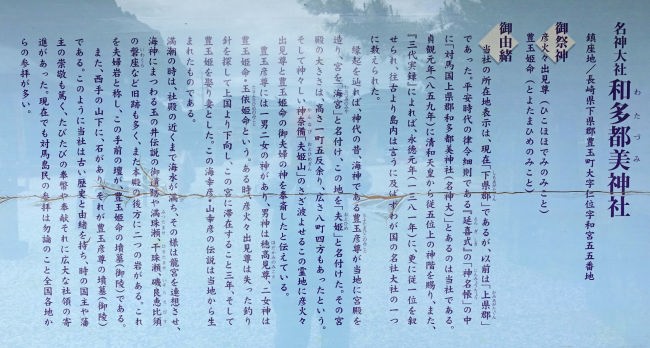 名神大社 和多都美神社
わたづみ
鎮座地/長崎県下県郡豊玉町大字仁位字和宮五五番地
御祭神
彦火々出見尊(ひこほほでみのみこと)
豊玉姫命(とよたまひめのみこと)
御由緒
当社の所在地表示は、現在「下県郡」であるが、以前は「上県郡」
であった。平安時代の律令細則である『延喜式』の「神名帳」の中
に「対馬国上県郡和多都美神社(名神大)」とあるのは当社である。
貞観元年(八五九年)に清和天皇から従五位上の神階を賜り、また、
『三代実録』によれば、永徳元年(一三八一年)に、更に従一位を叙
せられ、往古より島内は言うに及ばずわが国の名社大社の一つ
に数えられた。
縁起を辿れば、神代の昔、海神である豊玉彦尊が当地に宮殿を
造り、宮を「海宮」と名付け、この地を「夫姫」と名付けた。その宮
殿の大きさは、高さ一町五反余り、広さ八町四方もあったという。
そして神々しい神奈備「夫姫山」のさざ波よせるこの霊地に彦火々
出見尊と豊玉姫命の御夫婦の神を奉斎したと伝えている。
豊玉彦尊には一男二女の神があり、男神は穂高見尊、二女神は
豊玉姫命・玉依姫命という。ある時、彦火々出見尊は失った釣り
針を探して上国より下向し、この宮に滞在すること三年、そして
豊玉姫を娶り妻とした。この海幸彦・山幸彦の伝説は当地から生
まれたものである。
満潮の時は、社殿の近くまで海水が満ち、その様は龍宮を連想させ、
海神にまつわる玉の井伝説の御遺跡や満珠瀬、干珠瀬、磯良恵比須
の磐座など旧跡も多く、また本殿の後方に二つの岩がある。これ
を夫婦岩と称し、この手前の壇が、豊玉姫命の墳墓(御陵)である。
また、西手の山下に、石があり、それが豊玉彦尊の墳墓(御陵)
である。このように当社は古い歴史と由緒を持ち、時の国主や藩
主の崇敬も篤く、たびたびの奉幣や奉献それに広大な社領の寄
進があった。現在でも対馬島民の参拝は勿論のこと全国各地か
らの参拝が多い。